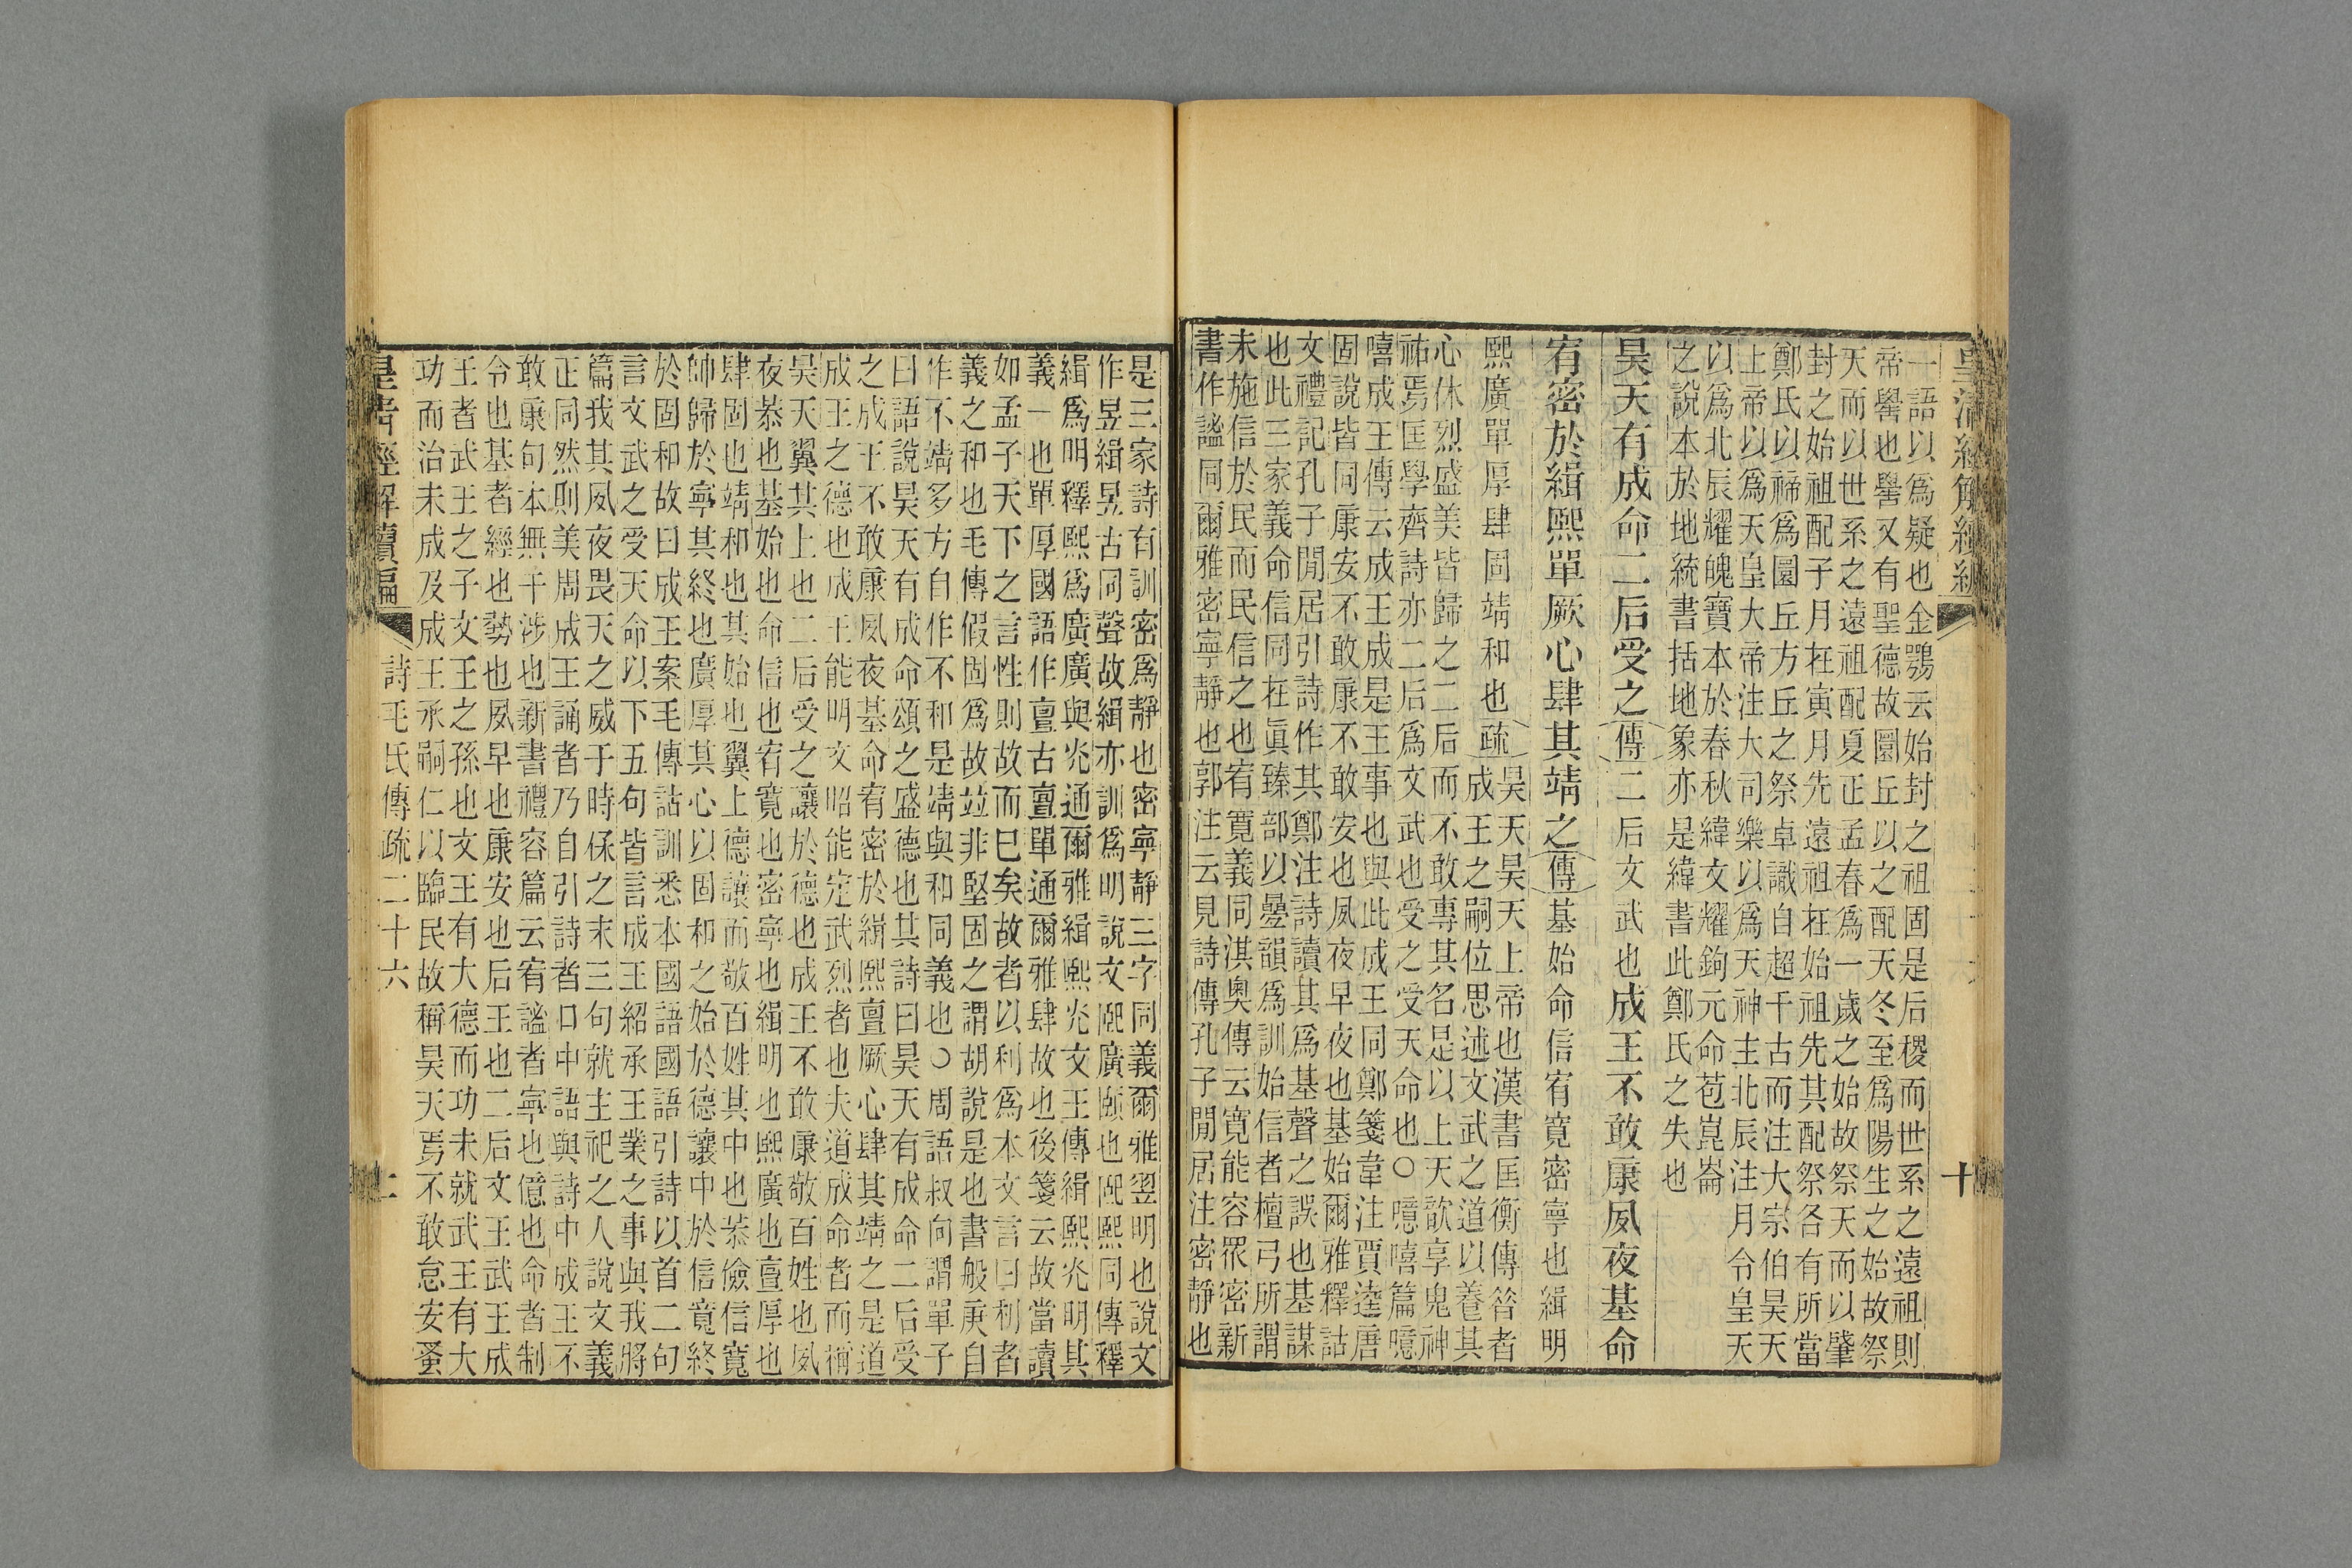 皇清經解續編 十
一語以爲疑也金鶚云始封之祖固是后稷而世系之遠祖則
帝嚳也嚳又有聖德故圜丘以之配天冬至爲陽生之始故祭
天而以世系之遠祖配夏正孟春爲一歲之始故祭天而以肇
封之始祖配子月在寅月先遠祖在始祖先其配祭各有所當
鄭氏以禘爲圜丘方丘之祭卓識自超千古而注大宗伯昊天
上帝以爲天皇大帝注大司樂以爲天神主北辰注月令皇天
以爲北辰耀魄寶本於春秋緯文耀鉤元命苞崑崙
之說本於地統書括地象亦是緯書此鄭氏之失也
昊天有成命二后受之傳二后文武也成王不敢康夙夜基命
宥密於緝熙單厥心肆其靖之傳基始命信宥寬密寧也緝明
熙廣單厚肆固靖和也疏昊天昊天上帝也漢書匡衡傳昝者
成王之嗣位思述文武之道以養其
心休烈盛美皆歸之二后而不敢專其名是以上天歆享鬼神
祐焉匡學齊詩亦二后爲文武也受之受天命也○噫嘻篇噫
嘻成王傳云成王成是王事也與此成王同鄭箋韋注賈逵唐
固說皆同康安不敢康不敢安也夙夜早夜也基始爾雅釋詁
文禮記孔子閒居引詩作其鄭注詩讀其爲基聲之誤也基謀
也此三家義命信同在眞臻部以曡韻爲訓始信者檀弓所謂
未施信於民而民信之也宥寬義同淇奧傳云寬能容眾密新
書作謐同爾雅密寧靜也郭注云見詩傳孔子閒居注密靜也
是三家詩有訓密爲靜也密寧靜三字同義爾雅翌明也說文
作昱緝昱古同聲故緝亦訓爲明說文熙廣頤也熙熙同傳釋
緝爲明釋熙爲廣廣與光通爾雅緝熙光文王傳緝熙光明其
義一也單厚國語作亶古亶單通爾雅肆故也後箋云故當讀
如孟子天下之言性則故而巳矣故者以利爲本文言曰利者
義之和也毛傳假固爲故竝非堅固之謂胡說是也書般庚自
作不靖多方自作不和是靖與和同義也○周語叔向謂單子
曰語說昊天有成命頌之盛德也其詩曰昊天有成命二后受
之成王不敢康夙夜基命宥密於緝熙亶厥心肆其靖之是道
成王之德也成王能明文昭能定武烈者也夫道成命者而稱
昊天翼其上也二后受之讓於德也成王不敢康敬百姓也夙
夜恭也基始也命信也宥寬也密寧也緝明也熙廣也亶厚也
肆固也靖和也其始也翼上德讓而敬百姓其中也恭儉信寬
帥歸於寧其終也廣厚其心以固和之始於德讓中於信寬終
於固和故曰成王案毛傳詁訓悉本國語國語引詩以首二句
言文武之受天命以下五句皆言成王紹承王業之事與我將
篇我其夙夜畏天之威于時保之末三句就主祀之人說文義
正同然則美周成王誦者乃自引詩者口中語與詩中成王不
敢康句本無干涉也新書禮容篇云宥謐者寧也億也命者制
令也基者經也勢也夙早也康安也后王也二后文王武王成
王者武王之子文王之孫也文王有大德而功未就武王有大
功而治未成及成王承嗣仁以臨民故稱昊天焉不敢怠安蚤
皇清經解續編 詩毛氏傳疏二十六